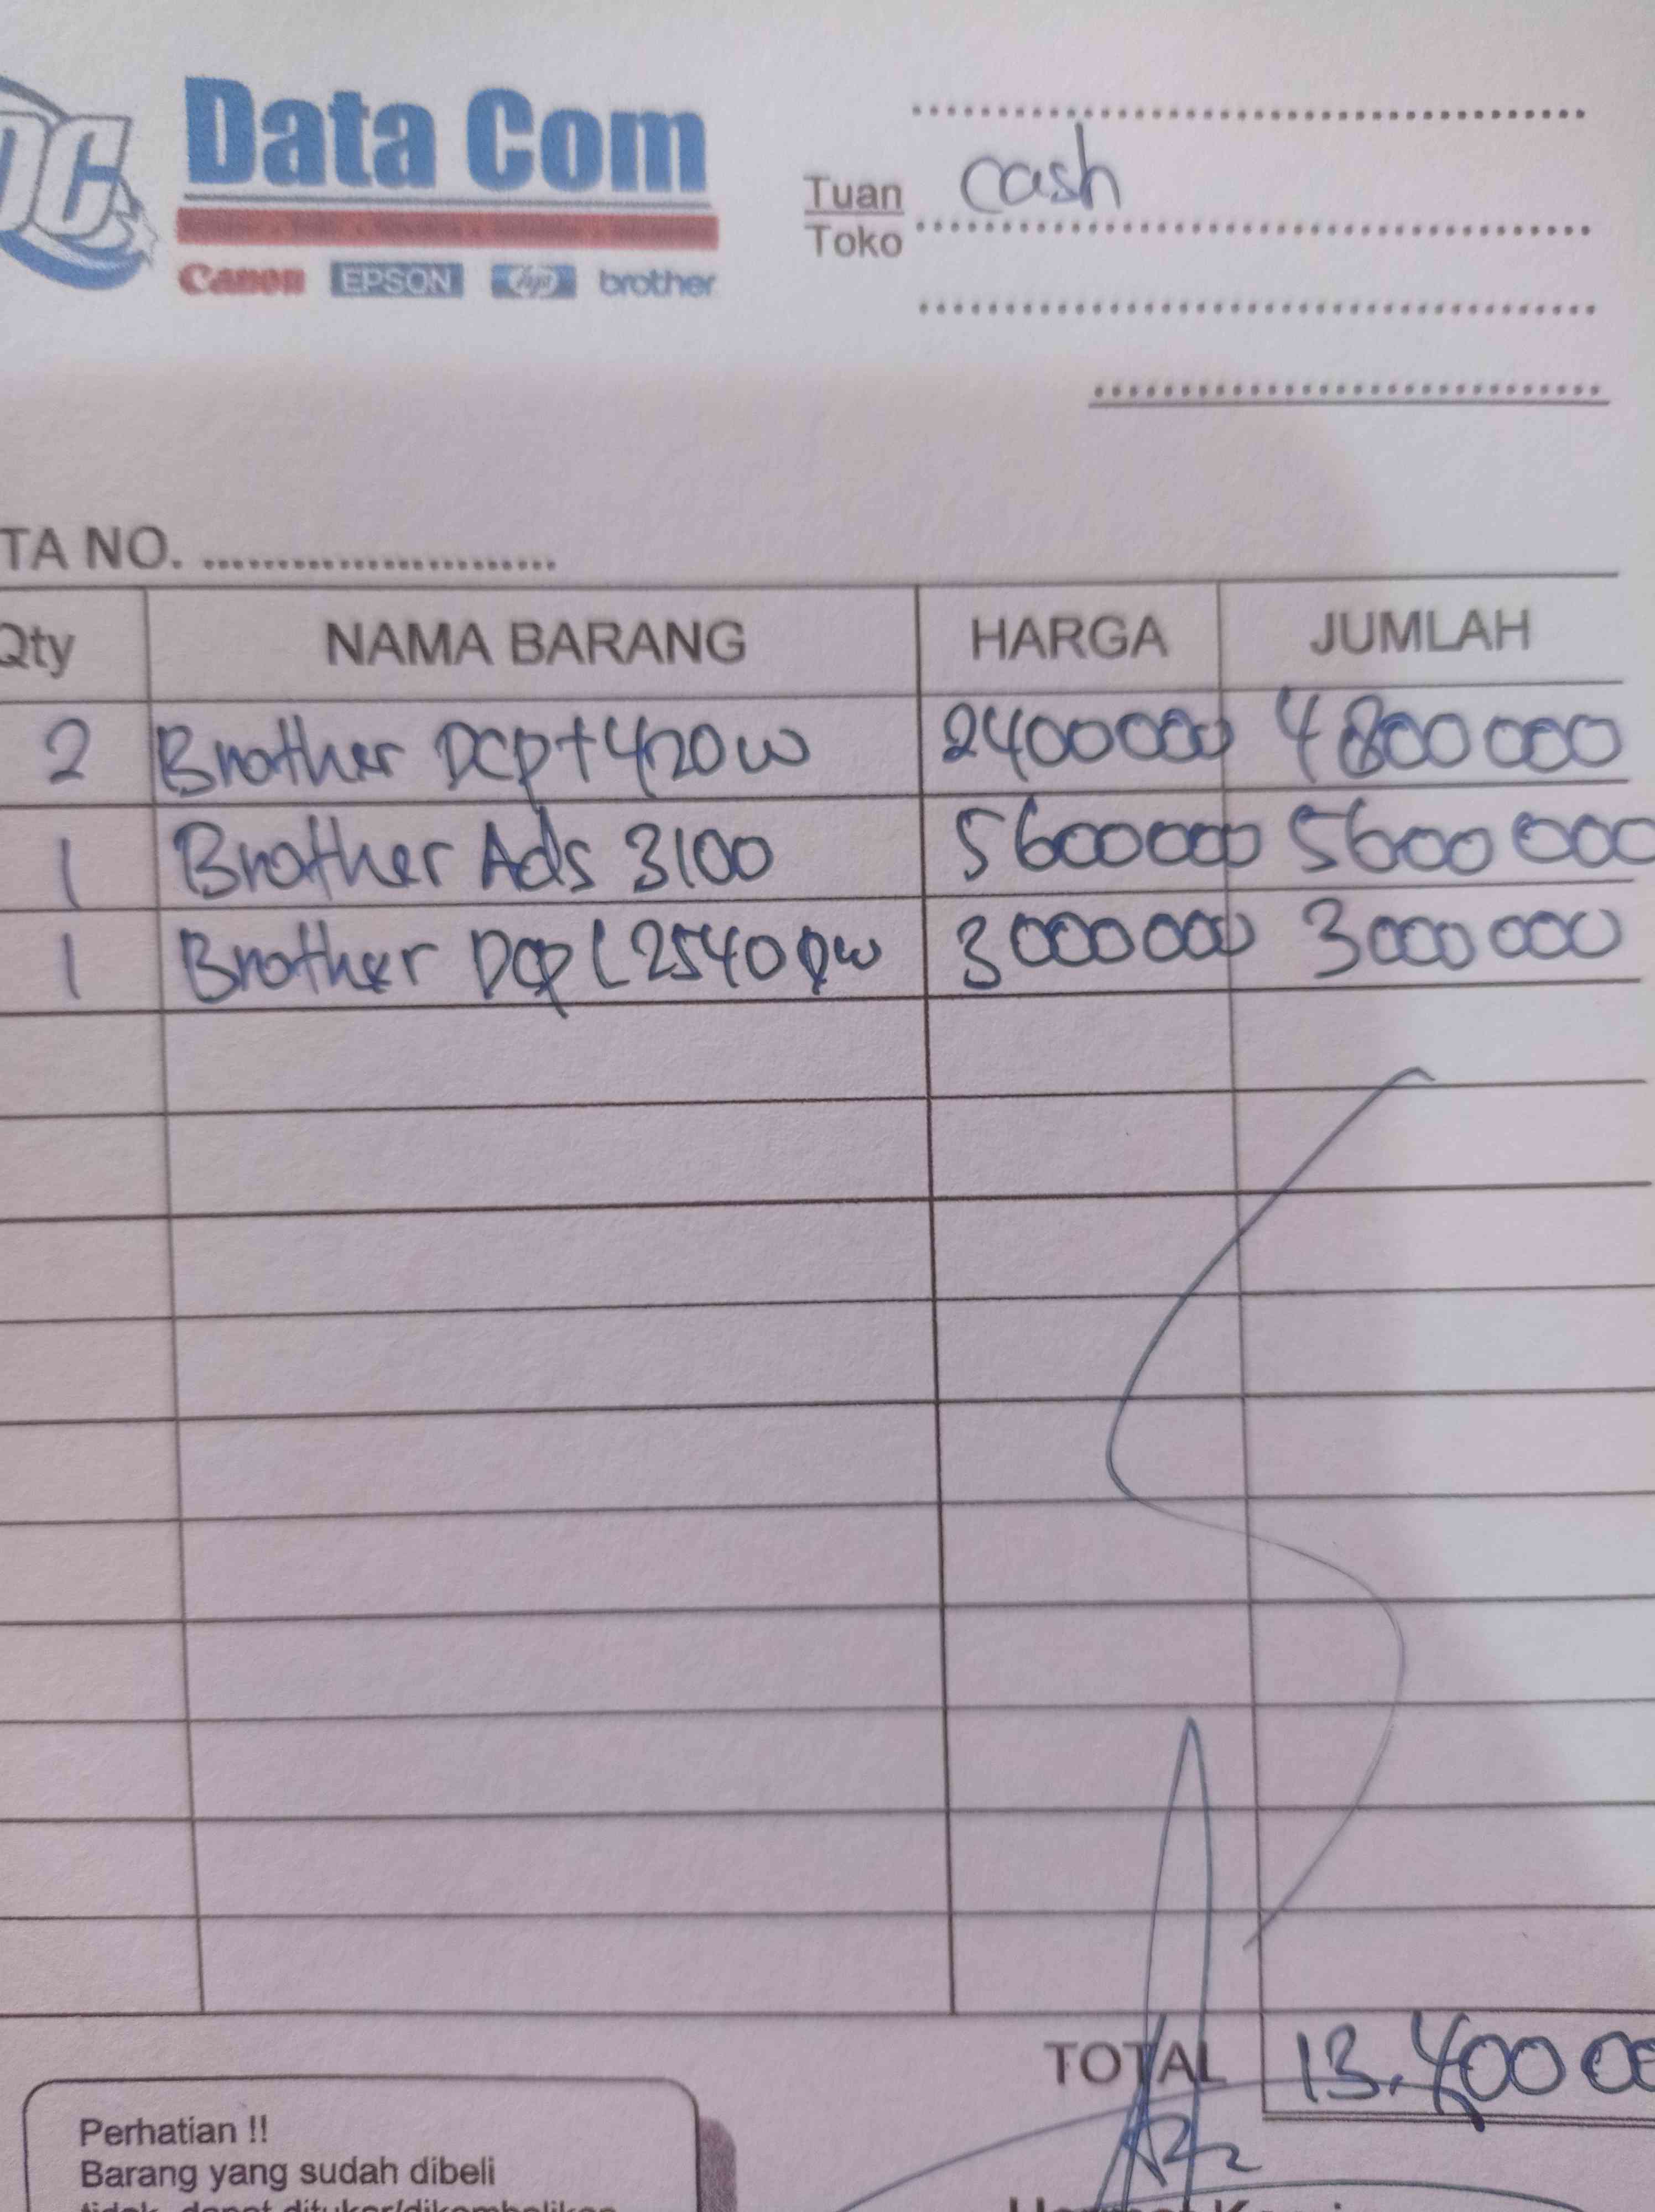 DC
Data Com
Canon EPSON hp brother
Tuan cash
Toko
TA NO.
Qty NAMA BARANG HARGA JUMLAH
2 Brother Dcp t 420 w 2400000 4800000
1 Brother Ads 3100 5600000 5600000
1 Brother Dcp L 2540 Dw 3000000 3000000
TOTAL 13.40000
Perhatian !!
Barang yang sudah dibeli
tidak dapat ditukar/dikembalikan